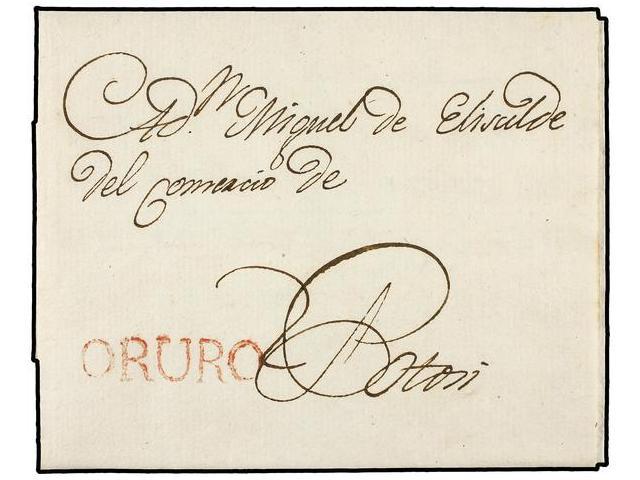 A D.n Miguel de Elisalde
del Comercio de
ORURO
Potosi